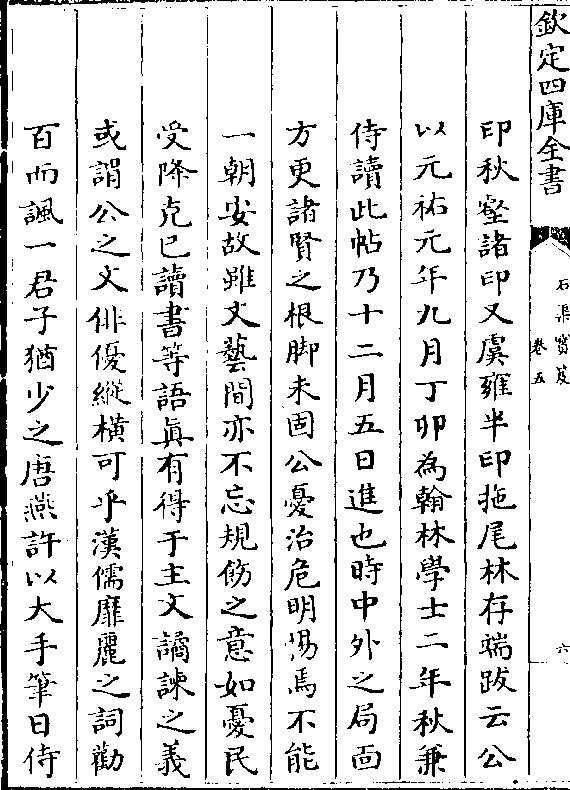 欽定四庫全書
石渠寶笈
卷五
六
印秋壑諸印又虞雍半印拖尾林存端跋云公
以元祐元年九月丁卯為翰林學士二年秋兼
侍讀此帖乃十二月五日進也時中外之局面
方更諸賢之根脚未固公憂治危明惕焉不能
一朝安故雖文藝間亦不忘規傚之意如憂民
受降克已讀書等語真有得于主文譎諫之義
或謂公之文俳優縱橫可乎漢儒靡麗之詞勸
百而諷一君子猶少之唐燕許以大手筆日侍